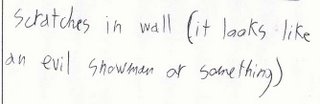 scratches in wall (it looks like
an evil snowman or something)